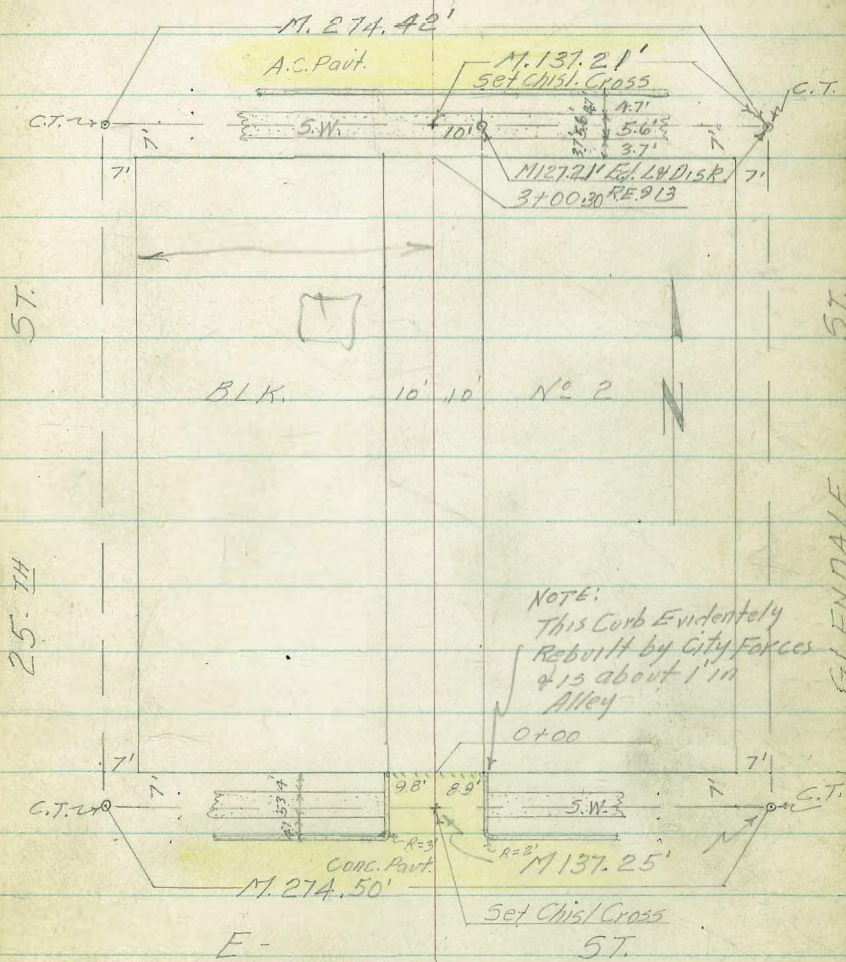 M. 274.42'
A.C. Pavt.
M. 137.21'
Set Chisl. Cross
C.T.
C.T.
S.W.
10'
4.7'
5.6'
3.7'
4.7'
5.6'
3.7'
7'
7'
7'
7'
M127.21' Ed. L&Disk
3+00.30 R.E. 913
ST.
ST.
BLK.
10'
10'
No 2
N
25-TH
GLENDALE
NOTE:
This Curb Evidentely
Rebuilt by City Forces
& is about 1' in
Alley
0+00
7'
7'
7'
7'
9.8'
8.9'
C.T.
C.T.
S.W.
R=3'
R=2'
Conc. Pavt.
M 137.25'
M. 274.50'
Set Chisl Cross
E-
ST.